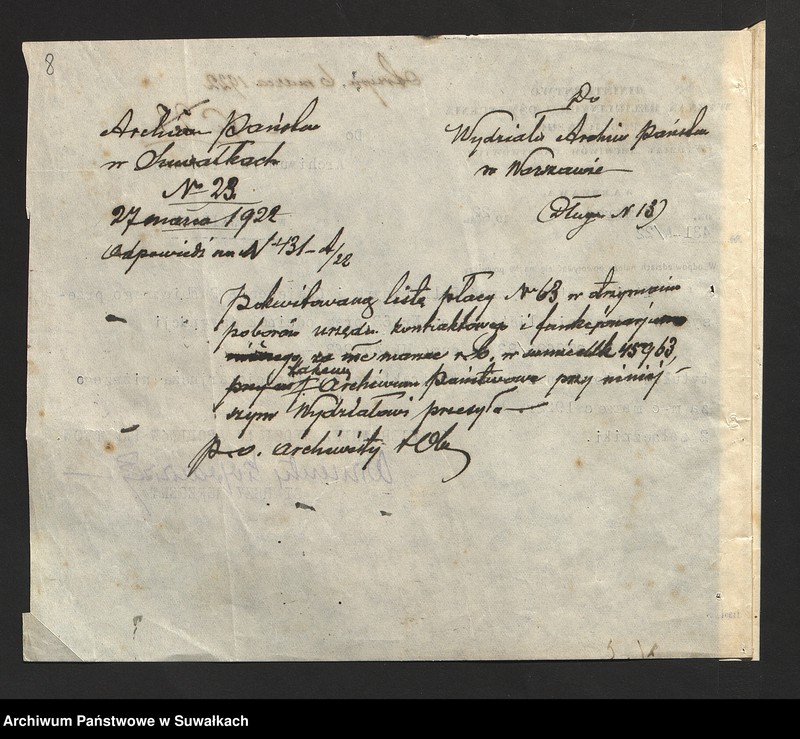 8
Archiwum Państw.
w Suwałkach
№ 23.
27 marca 1922
Odpowiedź na № 431-A/22
Do
Wydziału Archiw. Państw.
w Warszawie
(Długa № 13)
Pokwitowaną listę płacy № 63 w otrzymaniu
poborów urzędn. kontraktowego i funkcjonarjusza
niższego, za m-c marzec r.b. w 45963,
Archiwum Państwowe przy niniej-
szym Wydziałowi przesyła
p.o. archiwisty
Archiwum Państwowe w Suwałkach